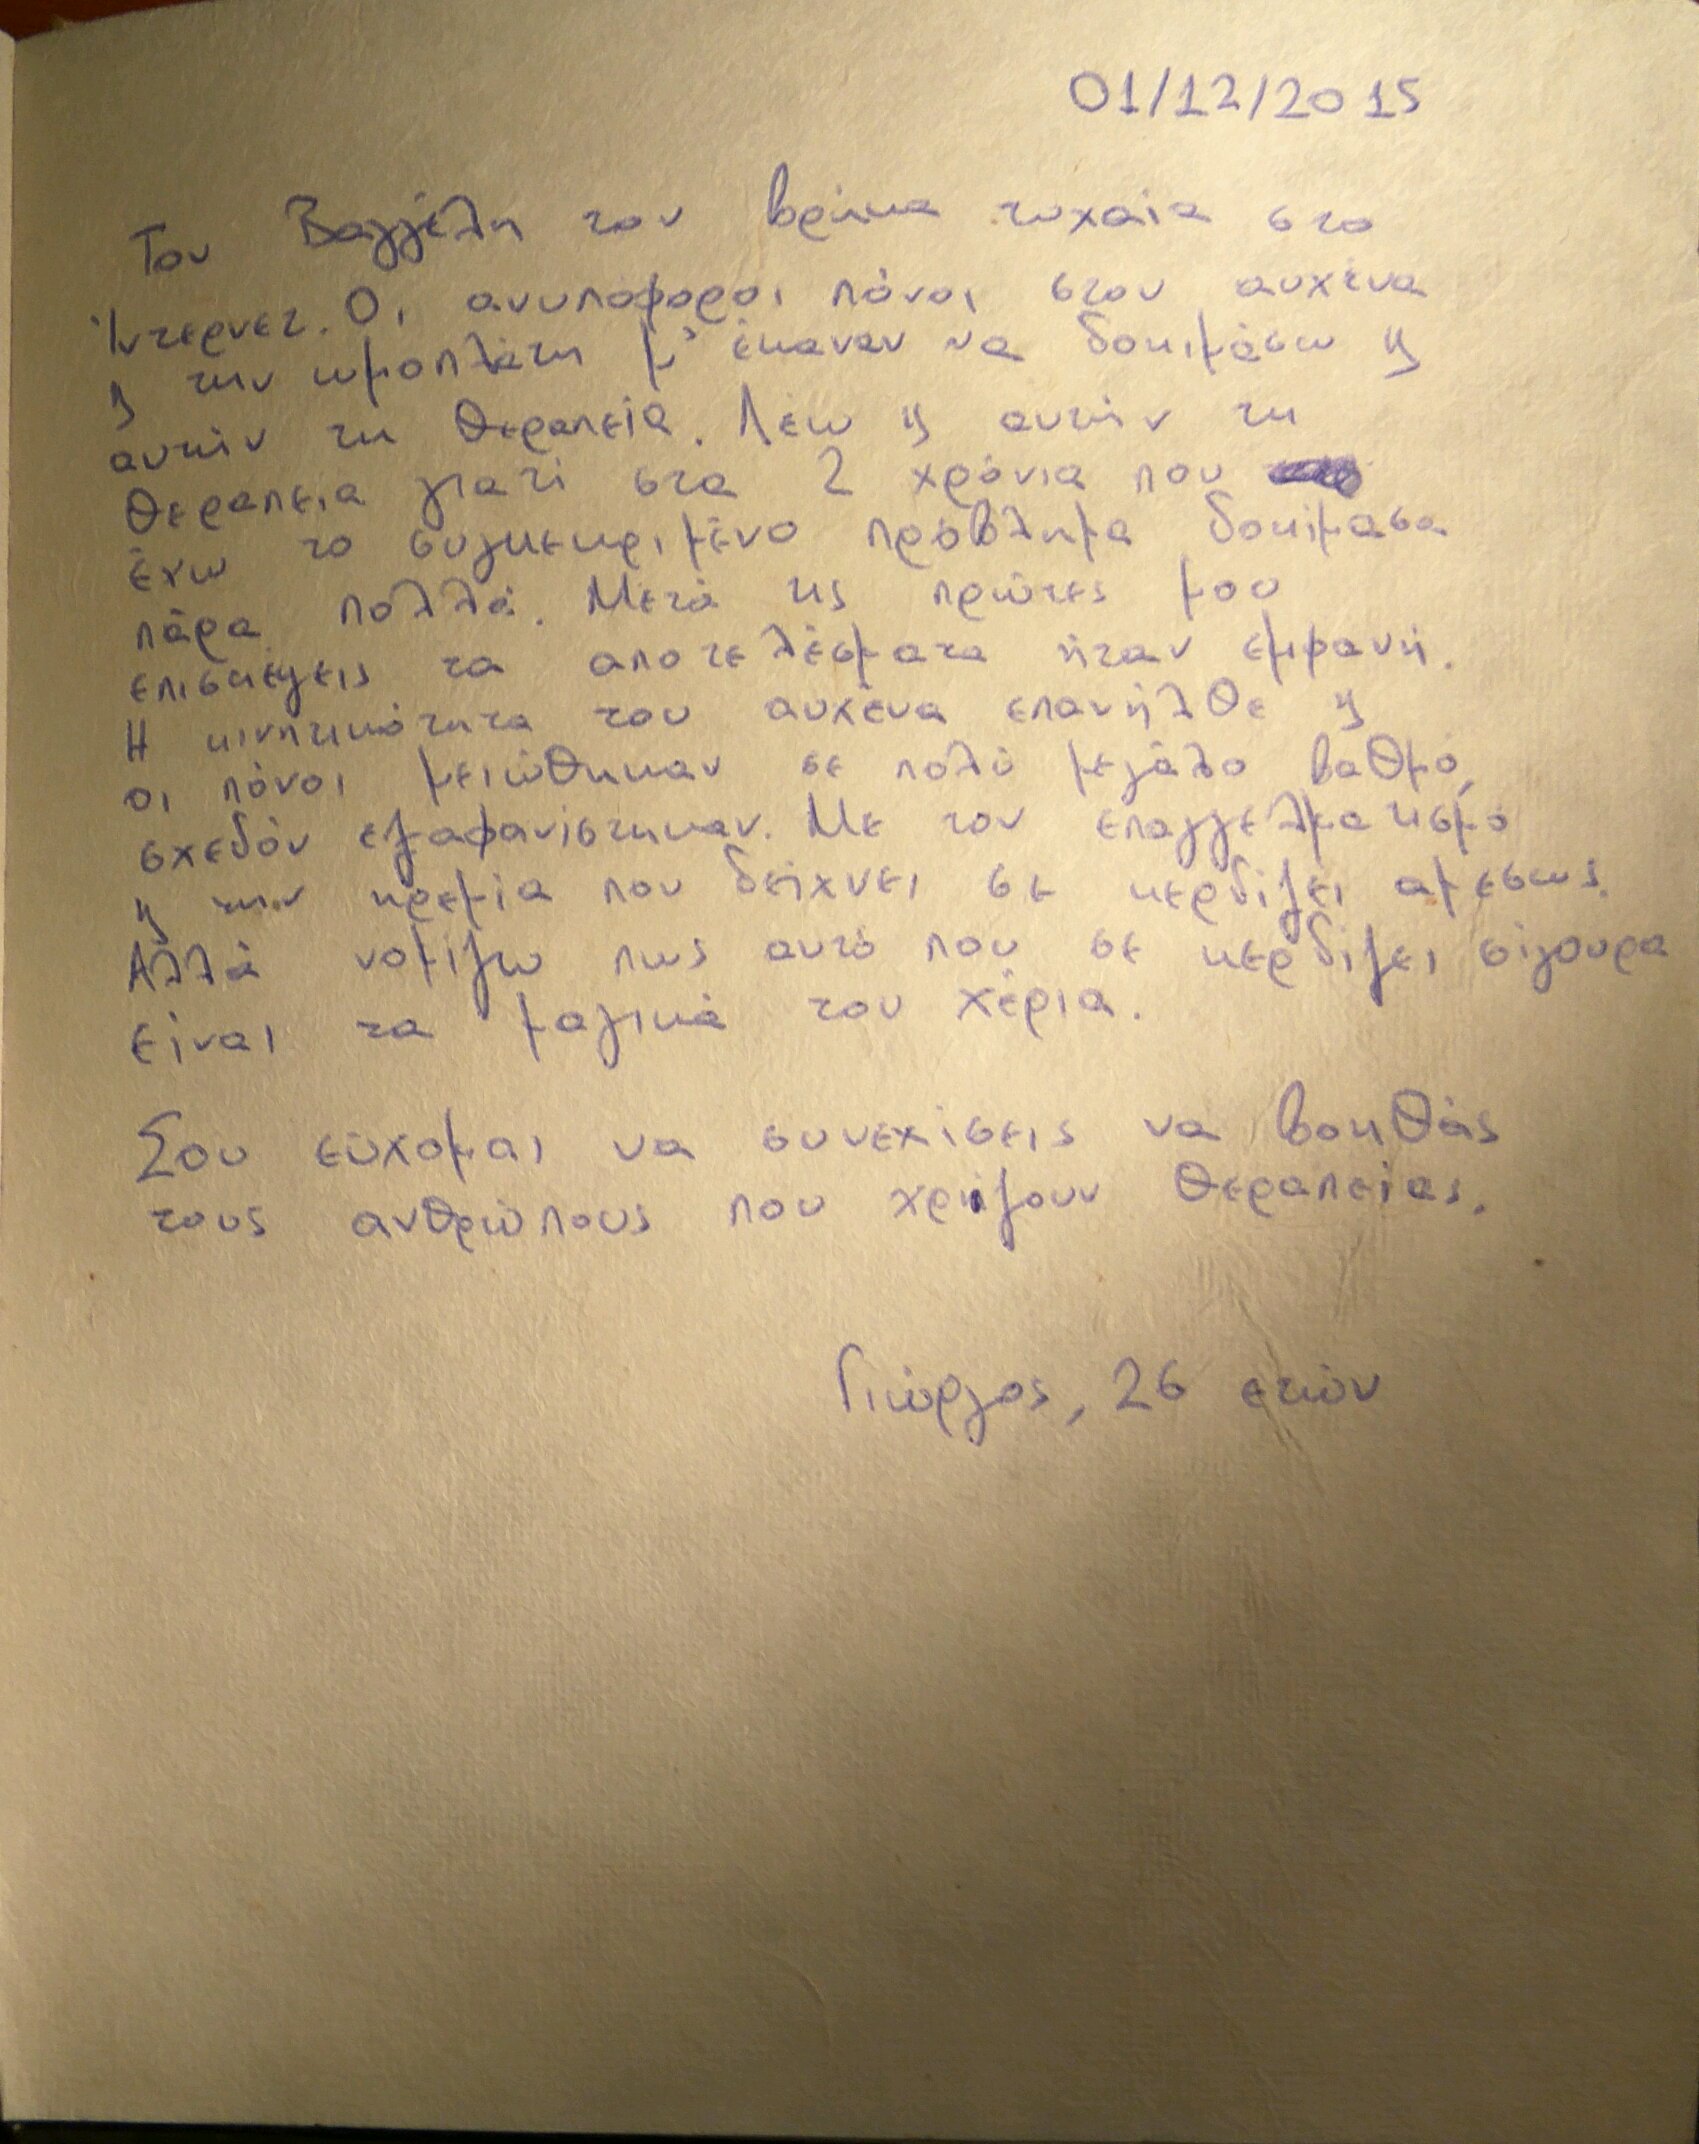 01/12/2015
Τον Βαγγέλη τον βρήκα τυχαία στο
ίντερνετ. Οι ανυπόφοροι πόνοι στον αυχένα
ϗ την ωμοπλάτη μ' έκαναν να δοκιμάσω ϗ
αυτήν τη θεραπεία. Λέω ϗ αυτήν τη
θεραπεια γιατί στα 2 χρόνια που
έχω το συγκεκριμένο πρόβλημα δοκίμασα
πάρα πολλά. Μετά τις πρώτες μου
επισκέψεις τα αποτελέσματα ήταν εμφανή.
Η κινητικότητα του αυχένα επανήλθε ϗ
οι πόνοι μειώθηκαν σε πολύ μεγάλο βαθμό,
σχεδόν εξαφανίστηκαν. Με τον επαγγελματισμό
ϗ την ηρεμία που δείχνει σε κερδίζει αμέσως.
Αλλά νομίζω πως αυτό που σε κερδίζει σίγουρα
είναι τα μαγικά του χέρια.
Σου εύχομαι να συνεχίσεις να βοηθάς
τους ανθρώπους που χρήζουν θεραπείας.
Γιώργος, 26 ετών